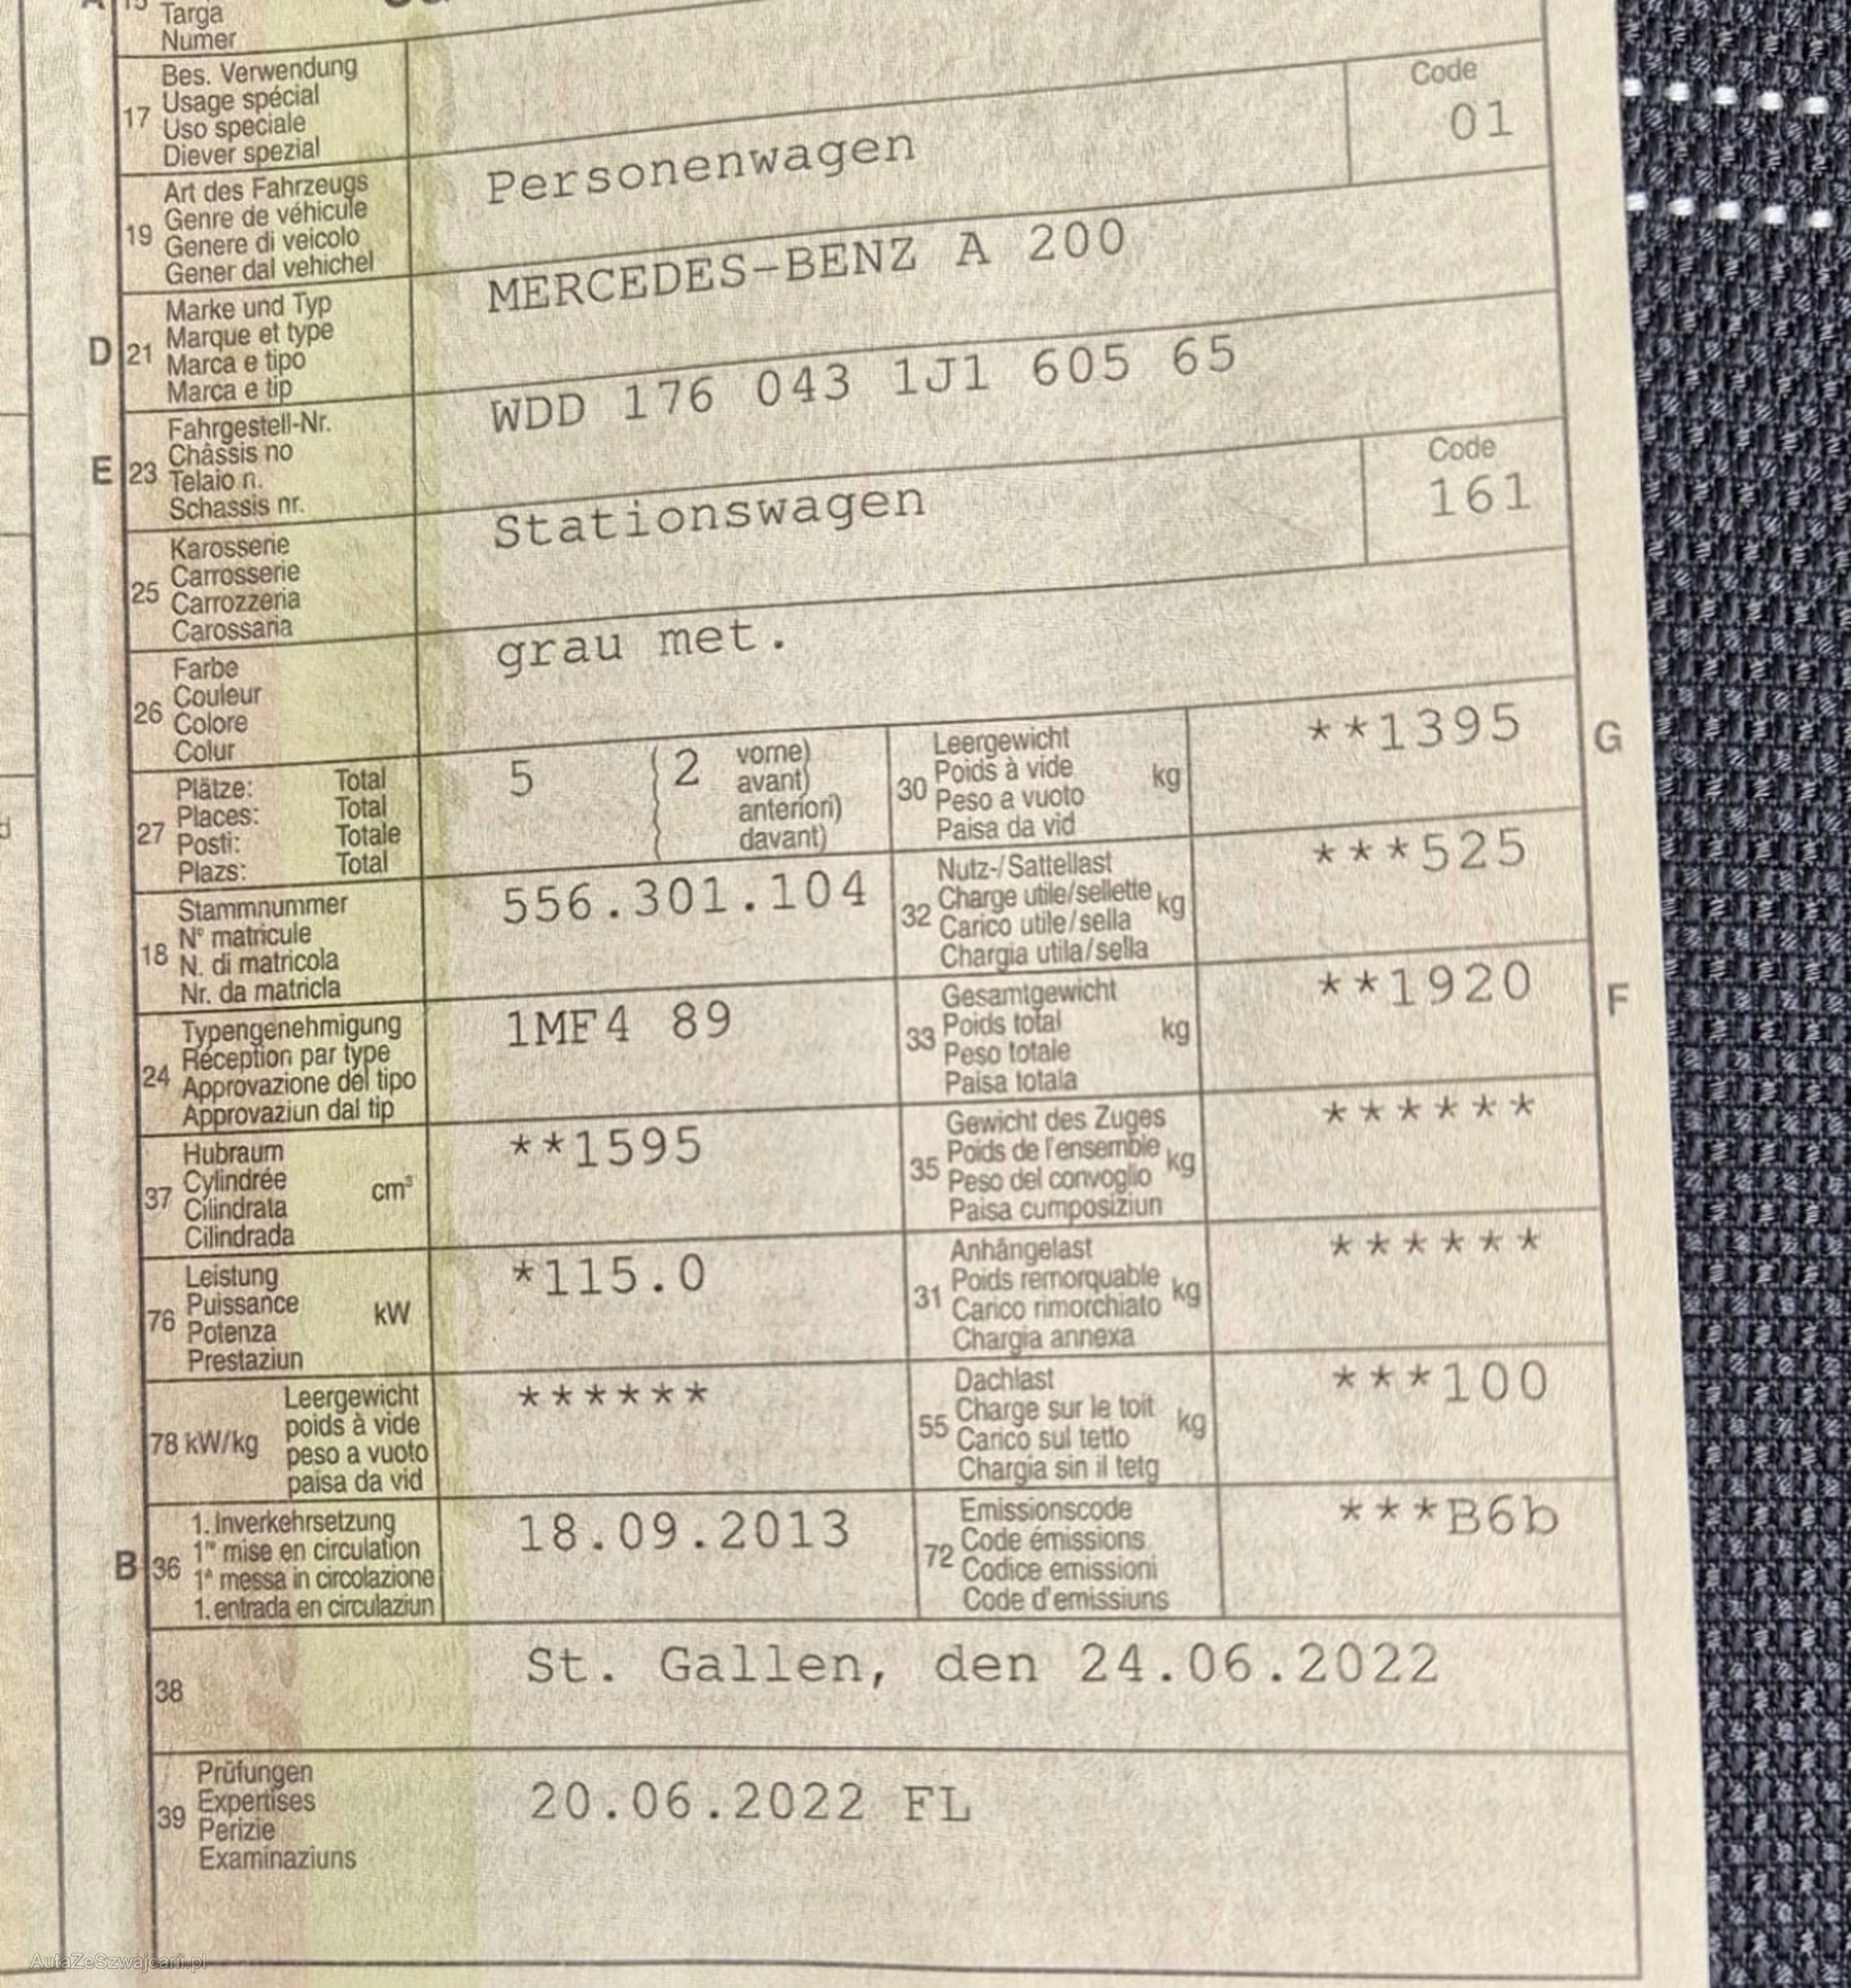 A 15 Targa
Numer
Bes. Verwendung
17 Usage spécial
Uso speciale
Diever spezial
Art des Fahrzeugs
19 Genre de véhicule
Genere di veicolo
Gener dal vehichel
Personenwagen
Code
01
Marke und Typ
D 21 Marque et type
Marca e tipo
Marca e tip
MERCEDES-BENZ A 200
Fahrgestell-Nr.
E 23 Châssis no
Telaio n.
Schassis nr.
WDD 176 043 1J1 605 65
Karosserie
25 Carrosserie
Carrozzeria
Carossaria
Stationswagen
Code
161
Farbe
26 Couleur
Colore
Colur
grau met.
27 Plätze: Total
Places: Total
Posti: Totale
Plazs: Total
5 (2 vorne)
avant)
anteriori)
davant)
30 Leergewicht
Poids à vide kg
Peso a vuoto
Paisa da vid
**1395
G
18 Stammnummer
N° matricule
N. di matricola
Nr. da matricla
556.301.104
32 Nutz-/Sattellast
Charge utile/sellette kg
Carico utile/sella
Chargia utila/sella
***525
24 Typengenehmigung
Réception par type
Approvazione del tipo
Approvaziun dal tip
1MF4 89
33 Gesamtgewicht
Poids total kg
Peso totale
Paisa totala
**1920
F
37 Hubraum
Cylindrée cm³
Cilindrata
Cilindrada
**1595
35 Gewicht des Zuges
Poids de l'ensemble kg
Peso del convoglio
Paisa cumposiziun
******
76 Leistung
Puissance kW
Potenza
Prestaziun
*115.0
31 Anhängelast
Poids remorquable kg
Carico rimorchiato
Chargia annexa
******
78 kW/kg Leergewicht
poids à vide
peso a vuoto
paisa da vid
******
55 Dachlast
Charge sur le toit kg
Carico sul tetto
Chargia sin il tetg
***100
B 36 1. Inverkehrsetzung
1re mise en circulation
1ª messa in circolazione
1. entrada en circulaziun
18.09.2013
72 Emissionscode
Code émissions
Codice emissioni
Code d'emissiuns
***B6b
38
St. Gallen, den 24.06.2022
39 Prüfungen
Expertises
Perizie
Examinaziuns
20.06.2022 FL
AutaZeSzwajcarii.pl